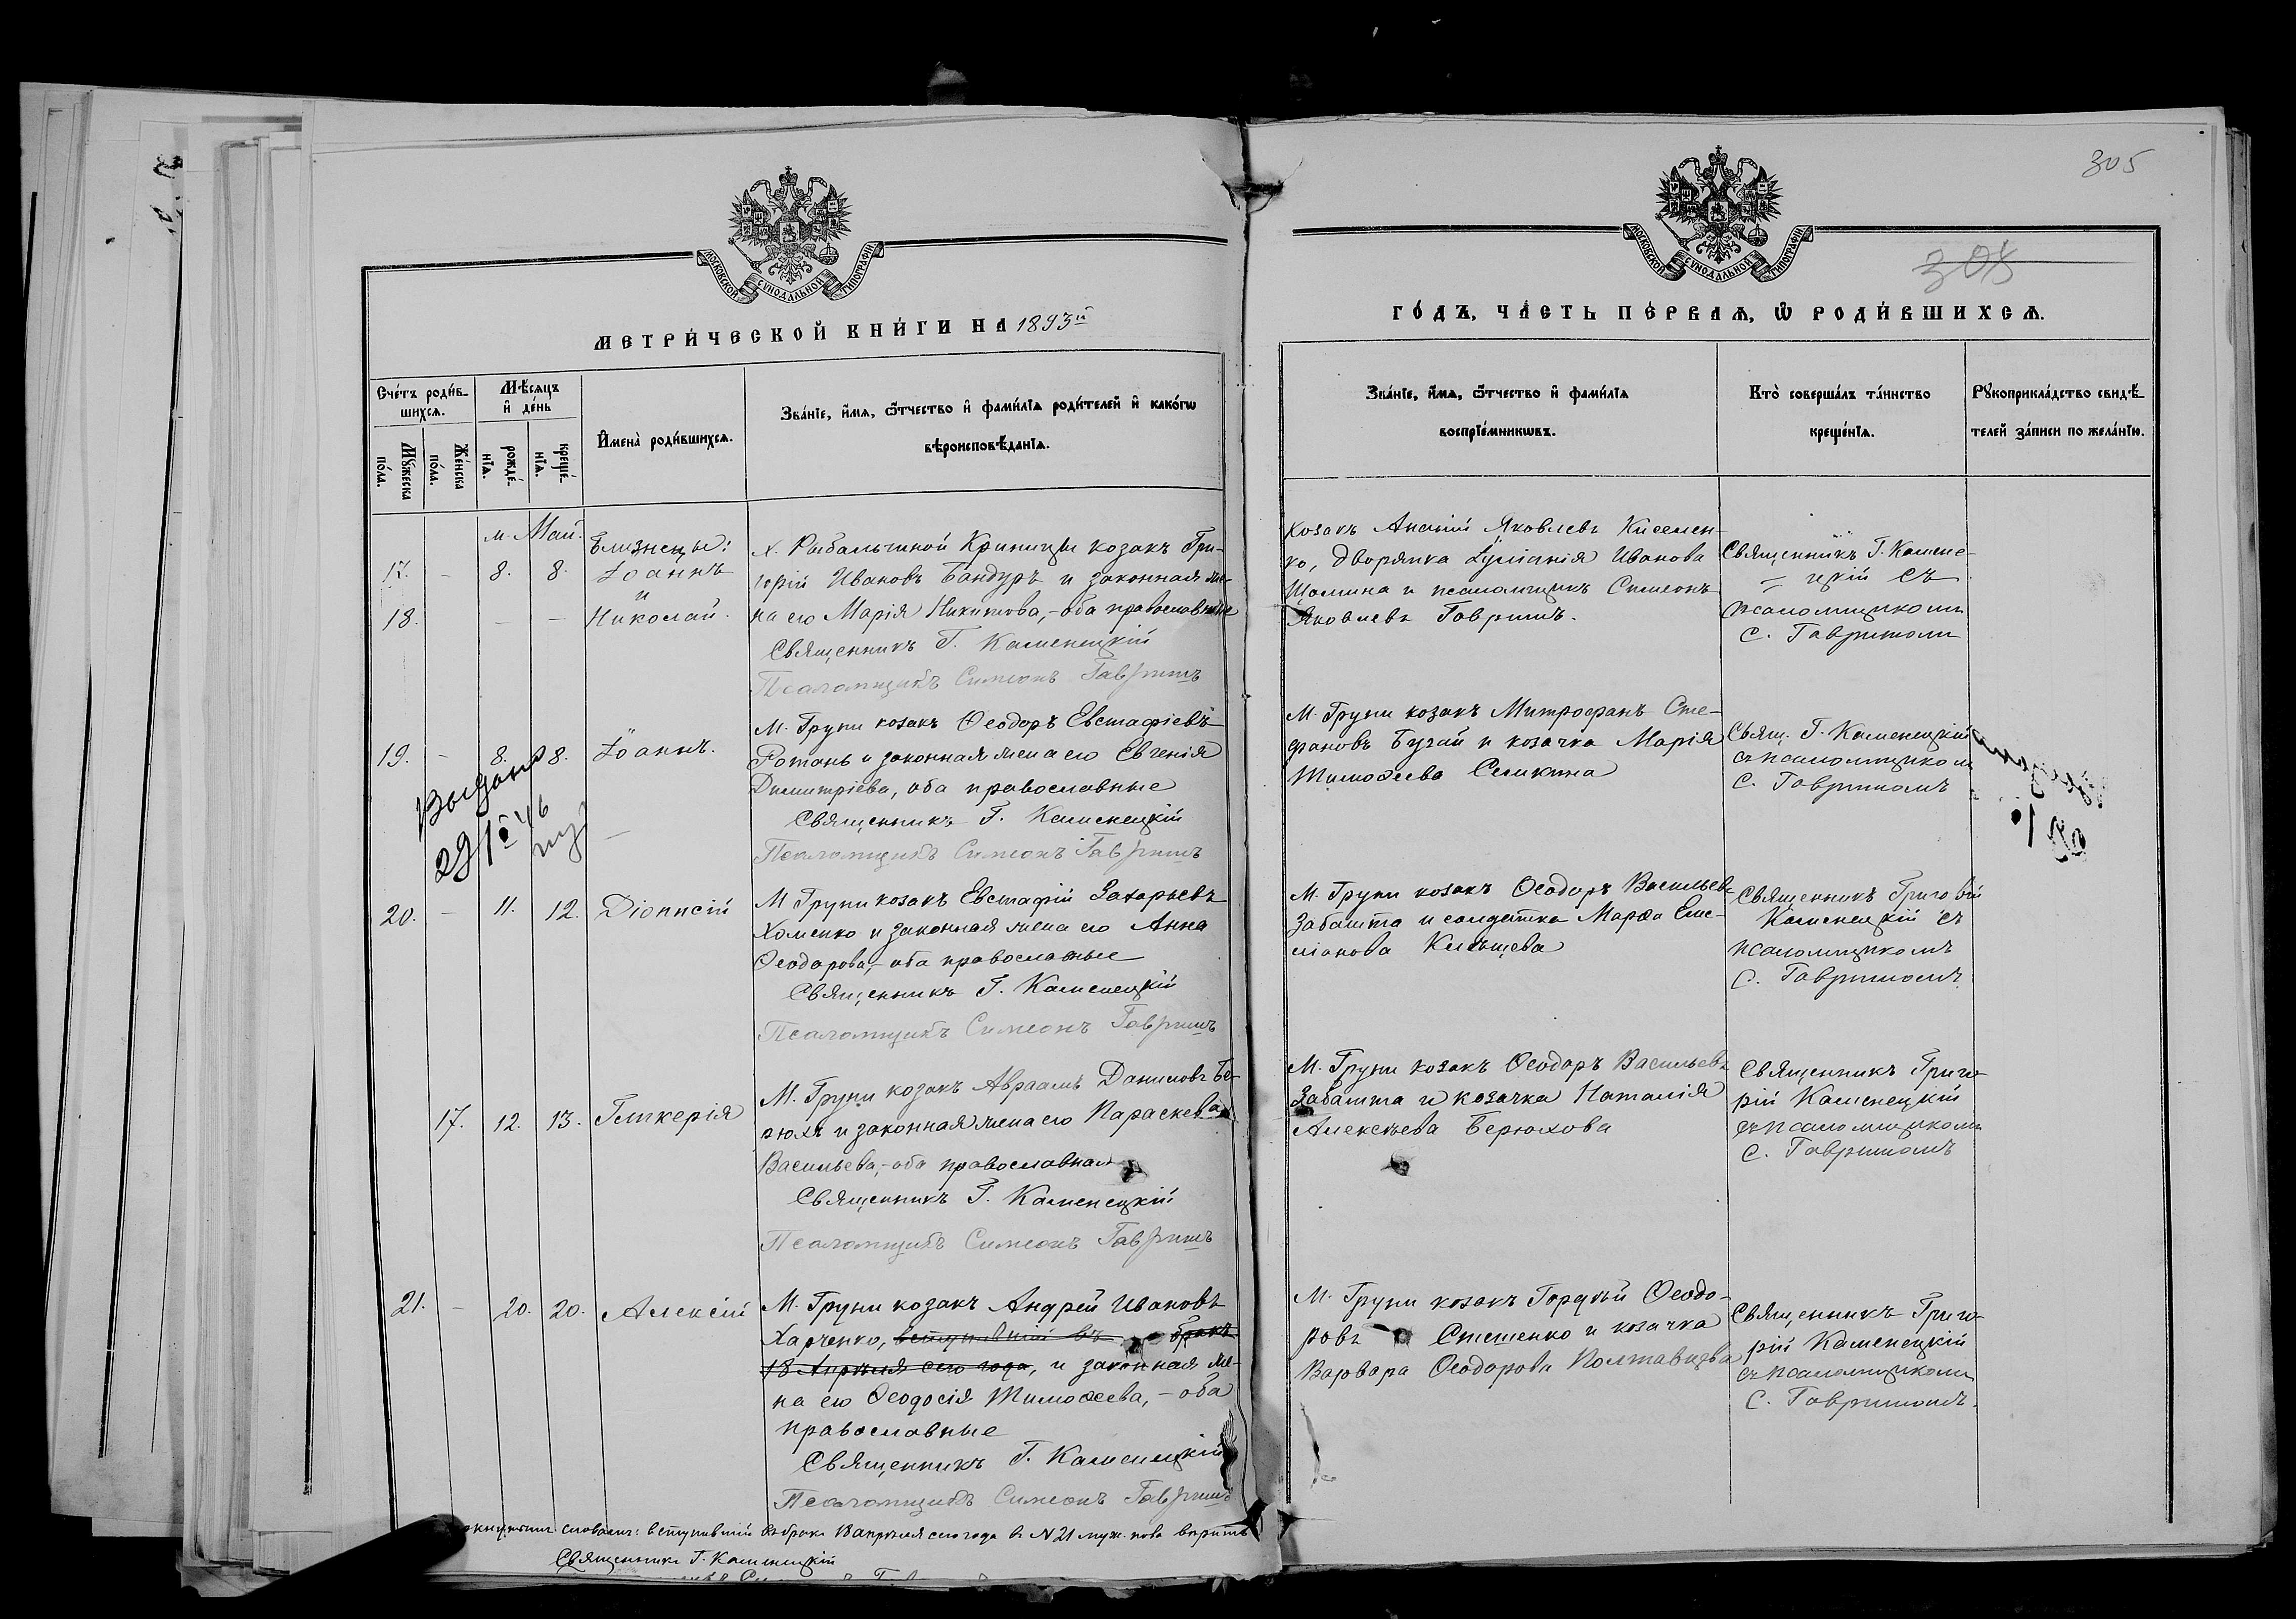 305
305
МОСКОВСКОЙ СУНОДАЛЬНОЙ ТИПОГРАФІИ
МОСКОВСКОЙ СУНОДАЛЬНОЙ ТИПОГРАФІИ
МЕТРИ́ЧЕСКОЙ КНИ́ГИ НА 1893й
ГО́ДЪ, ЧА́СТЬ ПЕ́РВАѦ, Ѿ РОДИ́ВШИХСѦ.
Сче́тъ роди́в-
шихсѧ.
Мꙋжеска
по́ла.
Же́нска
по́ла.
Мѣ́сѧцъ
и҆ де́нь
рожде́-
нїѧ.
креще́-
нїѧ.
И҆мена̀ роди́вшихсѧ.
Зва́нїе, и҆́мѧ, ѻ҆́тчество и҆ фами́лїѧ роди́телей и҆ како́гѡ
вѣроисповѣ́данїѧ.
Зва́нїе, и҆́мѧ, ѻ҆́тчество и҆ фами́лїѧ
воспрїе́мникѡвъ.
Кто̀ соверша́лъ та́инство
креще́нїѧ.
Рꙋкоприкла́дство свидѣ́-
телей за́писи по жела́нїю.
м. Май.
17. - 8. 8.
18. — —
Близнецы:
Іоаннъ
и
Николай.
х. Рыбальчиной Криницы козакъ Гри-
горій Ивановъ Бандуръ и законная же-
на его Марія Никитова,- оба православные
Священникъ Г. Каменецкій
Псаломщикъ Симеонъ Гавришъ
козакъ Ананій Яковлевъ Киселен-
ко, дворянка Іуліанія Иванова
Щомина и псаломщикъ Симеонъ
Яковлевъ Гавришъ.
Священникъ Г. Камене-
цкій съ
псаломщикомъ
С. Гавришомъ
19. - 8. 8. Іоаннъ.
М. Груни козакъ Ѳеодоръ Евстафіевъ
Ротань и законная жена его Евгенія
Димитріева, оба православные
Священникъ Г. Каменецкій
Псаломщикъ Симеонъ Гавришъ
М. Груни козакъ Митрофанъ Сте-
фановъ Бугай и козачка Марія
Тимоѳеева Семикина
Свящ. Г. Каменецкій
съ псаломщиком
С. Гавришомъ
Выдано
20. - 11. 12. Діонисій
М Груни козакъ Евстафій Захарьевъ
Хоменко и законная жена его Анна
Ѳеодорова,- оба православные
Священникъ Г. Каменецкій
Псаломщикъ Симеонъ Гавришъ
М. Груни козакъ Ѳеодоръ Васильевъ
Забашта и солдатка Марѳа Еме-
ліанова
Священникъ Григорій
Каменецкій съ
псаломщикомъ
С. Гавришомъ.
17. 12. 13. Гликерія
М. Груни козакъ Авраамъ Даниловъ Бе-
рюхъ и законная жена его Параскева
Васильева,- оба православная
Священникъ Г. Каменецкій
Псаломщикъ Симеонъ Гавришъ
М. Груни козакъ Ѳеодоръ Васильевъ
Забашта и козачка Наталія
Алексѣева Берюхова
Священникъ Григо-
рій Каменецкій
съ псаломщикомъ
С. Гавришомъ
21. - 20. 20. Алексій
М. Груни козакъ Андрей Ивановъ
Харченко, вступившій въ бракъ
18 Апрѣля сего года, и законная же-
на его Ѳеодосія Тимоѳеева, - оба
православные
Священникъ Г. Каменецкій
Псаломщикъ Симеонъ Гавришъ
М. Груни козакъ Гордѣй Ѳеодо-
ровъ Стешенко и козачка
Варвара Ѳеодорова Полтавцева
Священникъ Григо-
рій Каменецкій
съ псаломщикомъ
С. Гавришомъ.
словамъ: вступившій въ бракъ 18 апрѣля сего года въ N 21 муж. пола вѣрить
Священникъ Г. Каменецкій